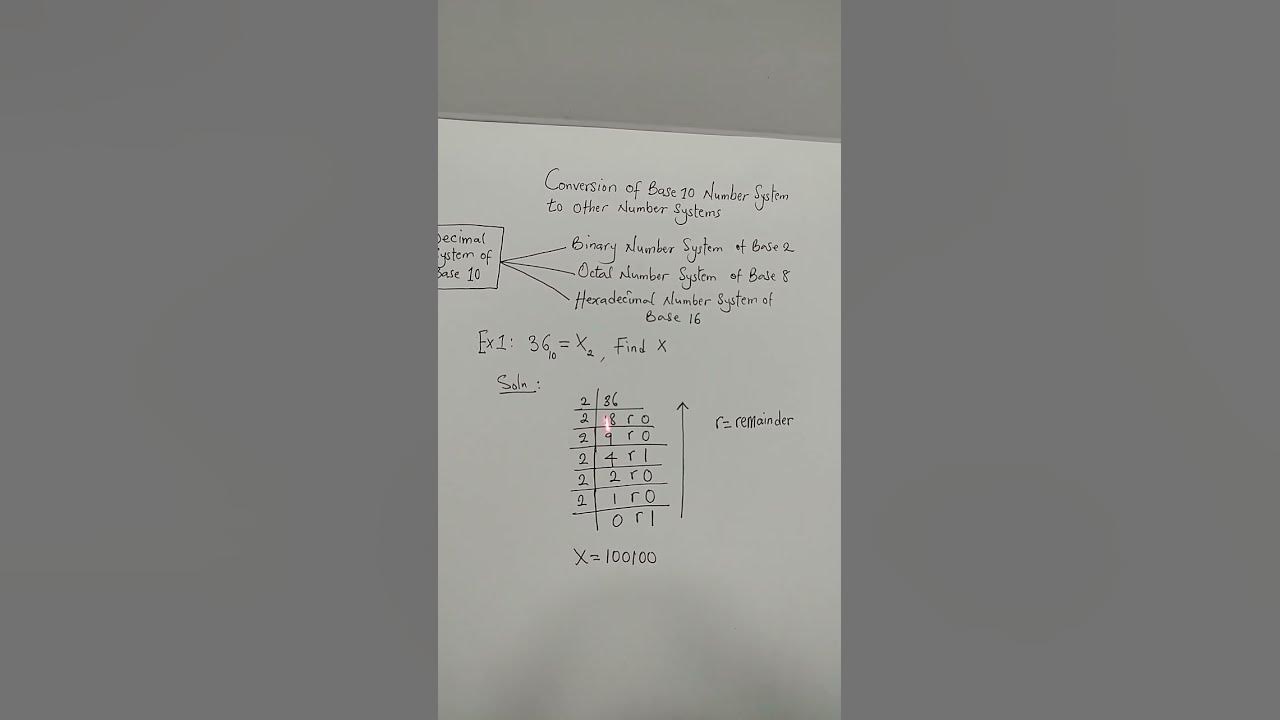 Conversion of Base 10 Number System
to Other Number Systems
Decimal
System of
Base 10
Binary Number System of Base 2
Octal Number System of Base 8
Hexadecimal Number System of
Base 16
Ex1: 36₁₀ = X₂, Find X
Soln:
2 36
2 18 r 0
2 9 r 0
2 4 r 1
2 2 r 0
2 1 r 0
0 r 1
r = remainder
X = 100100